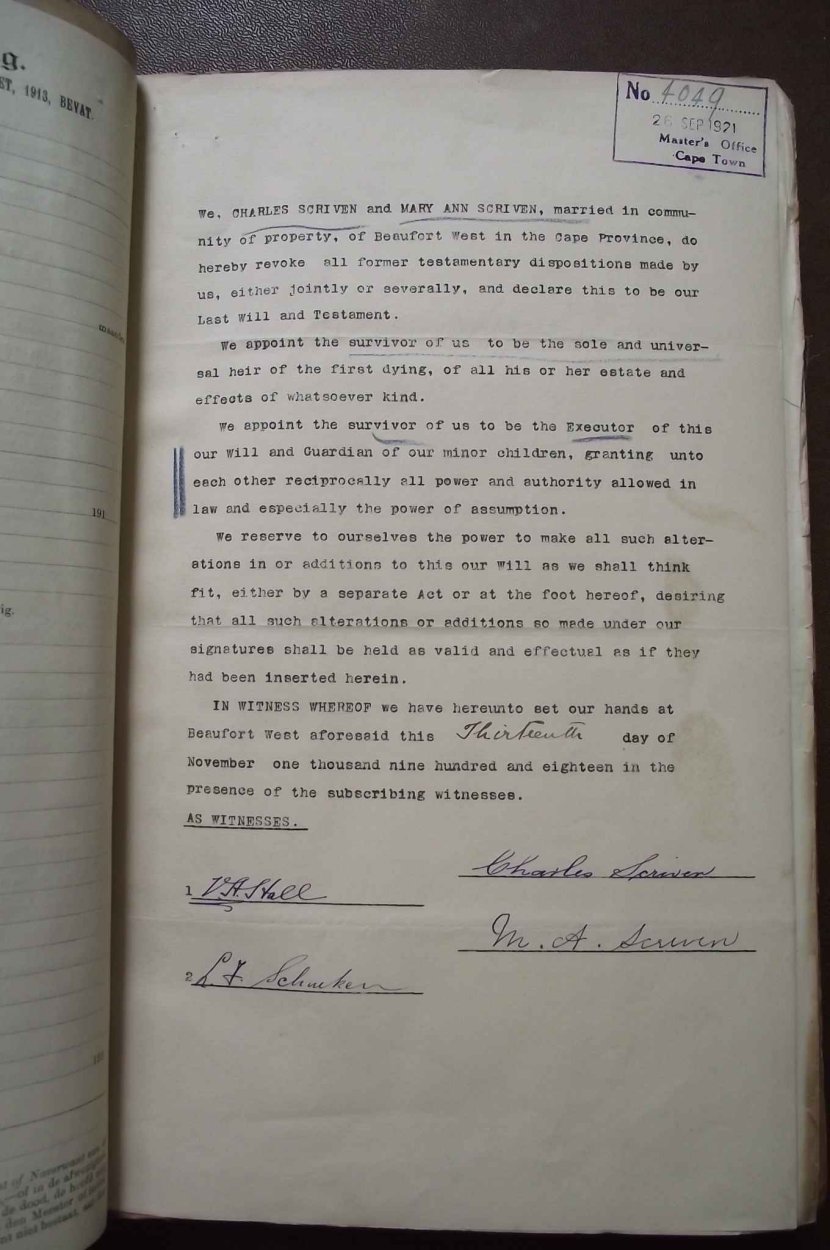 g.
ST, 1913, BEVAT.
191
ig.
No 4049
26 SEP 1921
Master's Office
Cape Town
We, CHARLES SCRIVEN and MARY ANN SCRIVEN, married in commu-
nity of property, of Beaufort West in the Cape Province, do
hereby revoke all former testamentary dispositions made by
us, either jointly or severally, and declare this to be our
Last Will and Testament.
We appoint the survivor of us to be the sole and univer-
sal heir of the first dying, of all his or her estate and
effects of whatsoever kind.
We appoint the survivor of us to be the Executor of this
our Will and Guardian of our minor children, granting unto
each other reciprocally all power and authority allowed in
law and especially the power of assumption.
We reserve to ourselves the power to make all such alter-
ations in or additions to this our Will as we shall think
fit, either by a separate Act or at the foot hereof, desiring
that all such alterations or additions so made under our
signatures shall be held as valid and effectual as if they
had been inserted herein.
IN WITNESS WHEREOF we have hereunto set our hands at
Beaufort West aforesaid this Thirteenth day of
November one thousand nine hundred and eighteen in the
presence of the subscribing witnesses.
AS WITNESSES.
Charles Scriven
1 V.A. Stall
M. A. Scriven
2 L. F.